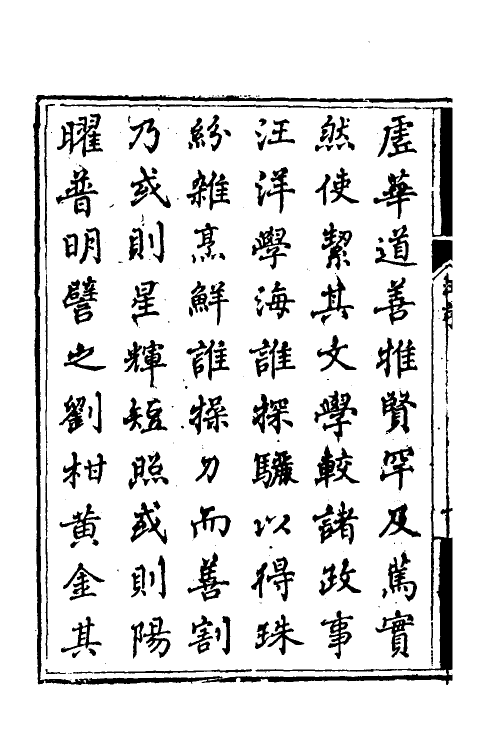 虗華道善雅賢罕及篤實
然使絜其文學較諸政事
汪洋學海誰探驪以得珠
紛雜烹鮮誰操刀而善割
乃或則星輝短照或則陽
曜普明譬之劉柑黄金其